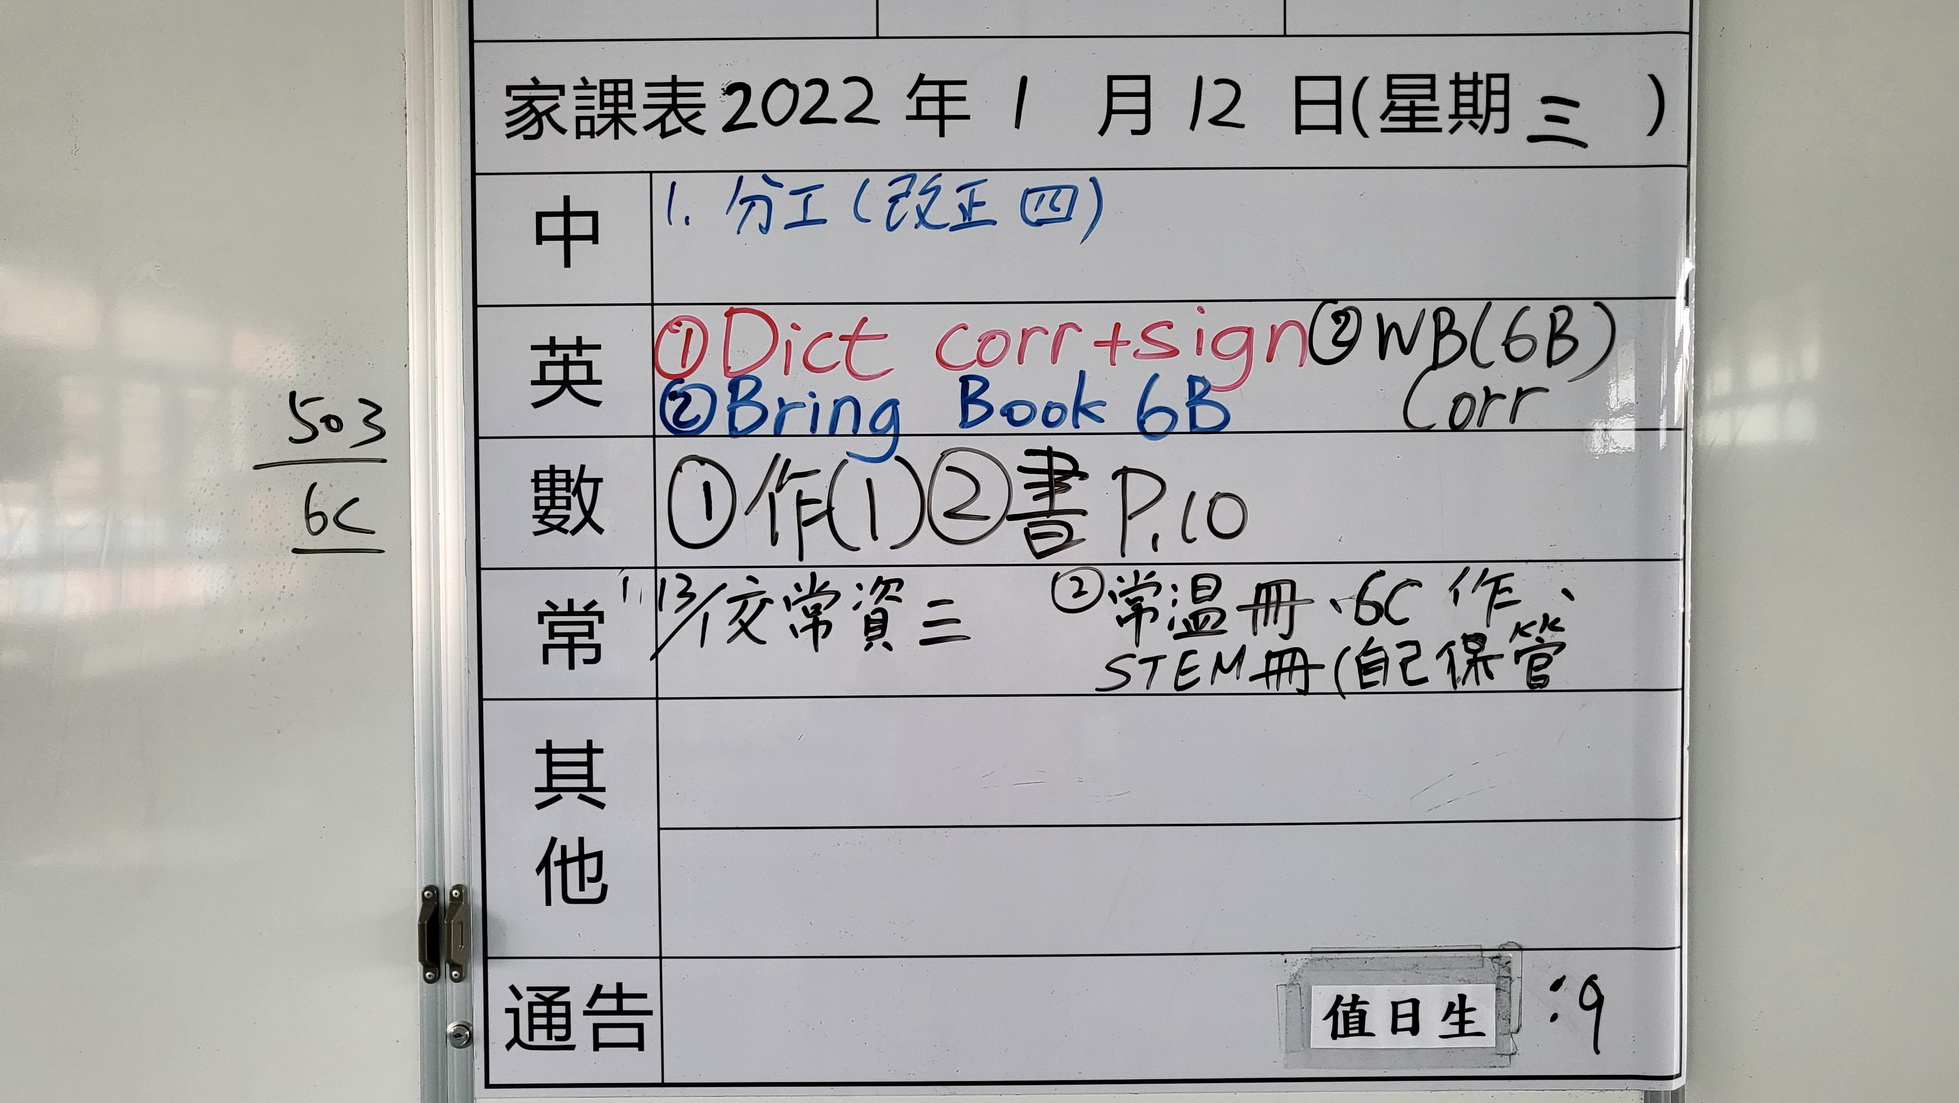 家課表2022年1月12日(星期三)
中
1. 分工(改正四)
英
①Dict corr+sign②WB(6B)
②Bring Book 6B Corr
503
6C
數
①作(1)②書P.10
常
1. 13/1交常資三 ②常温冊、6C作、
STEM冊(自己保管
其他
通告
值日生:9